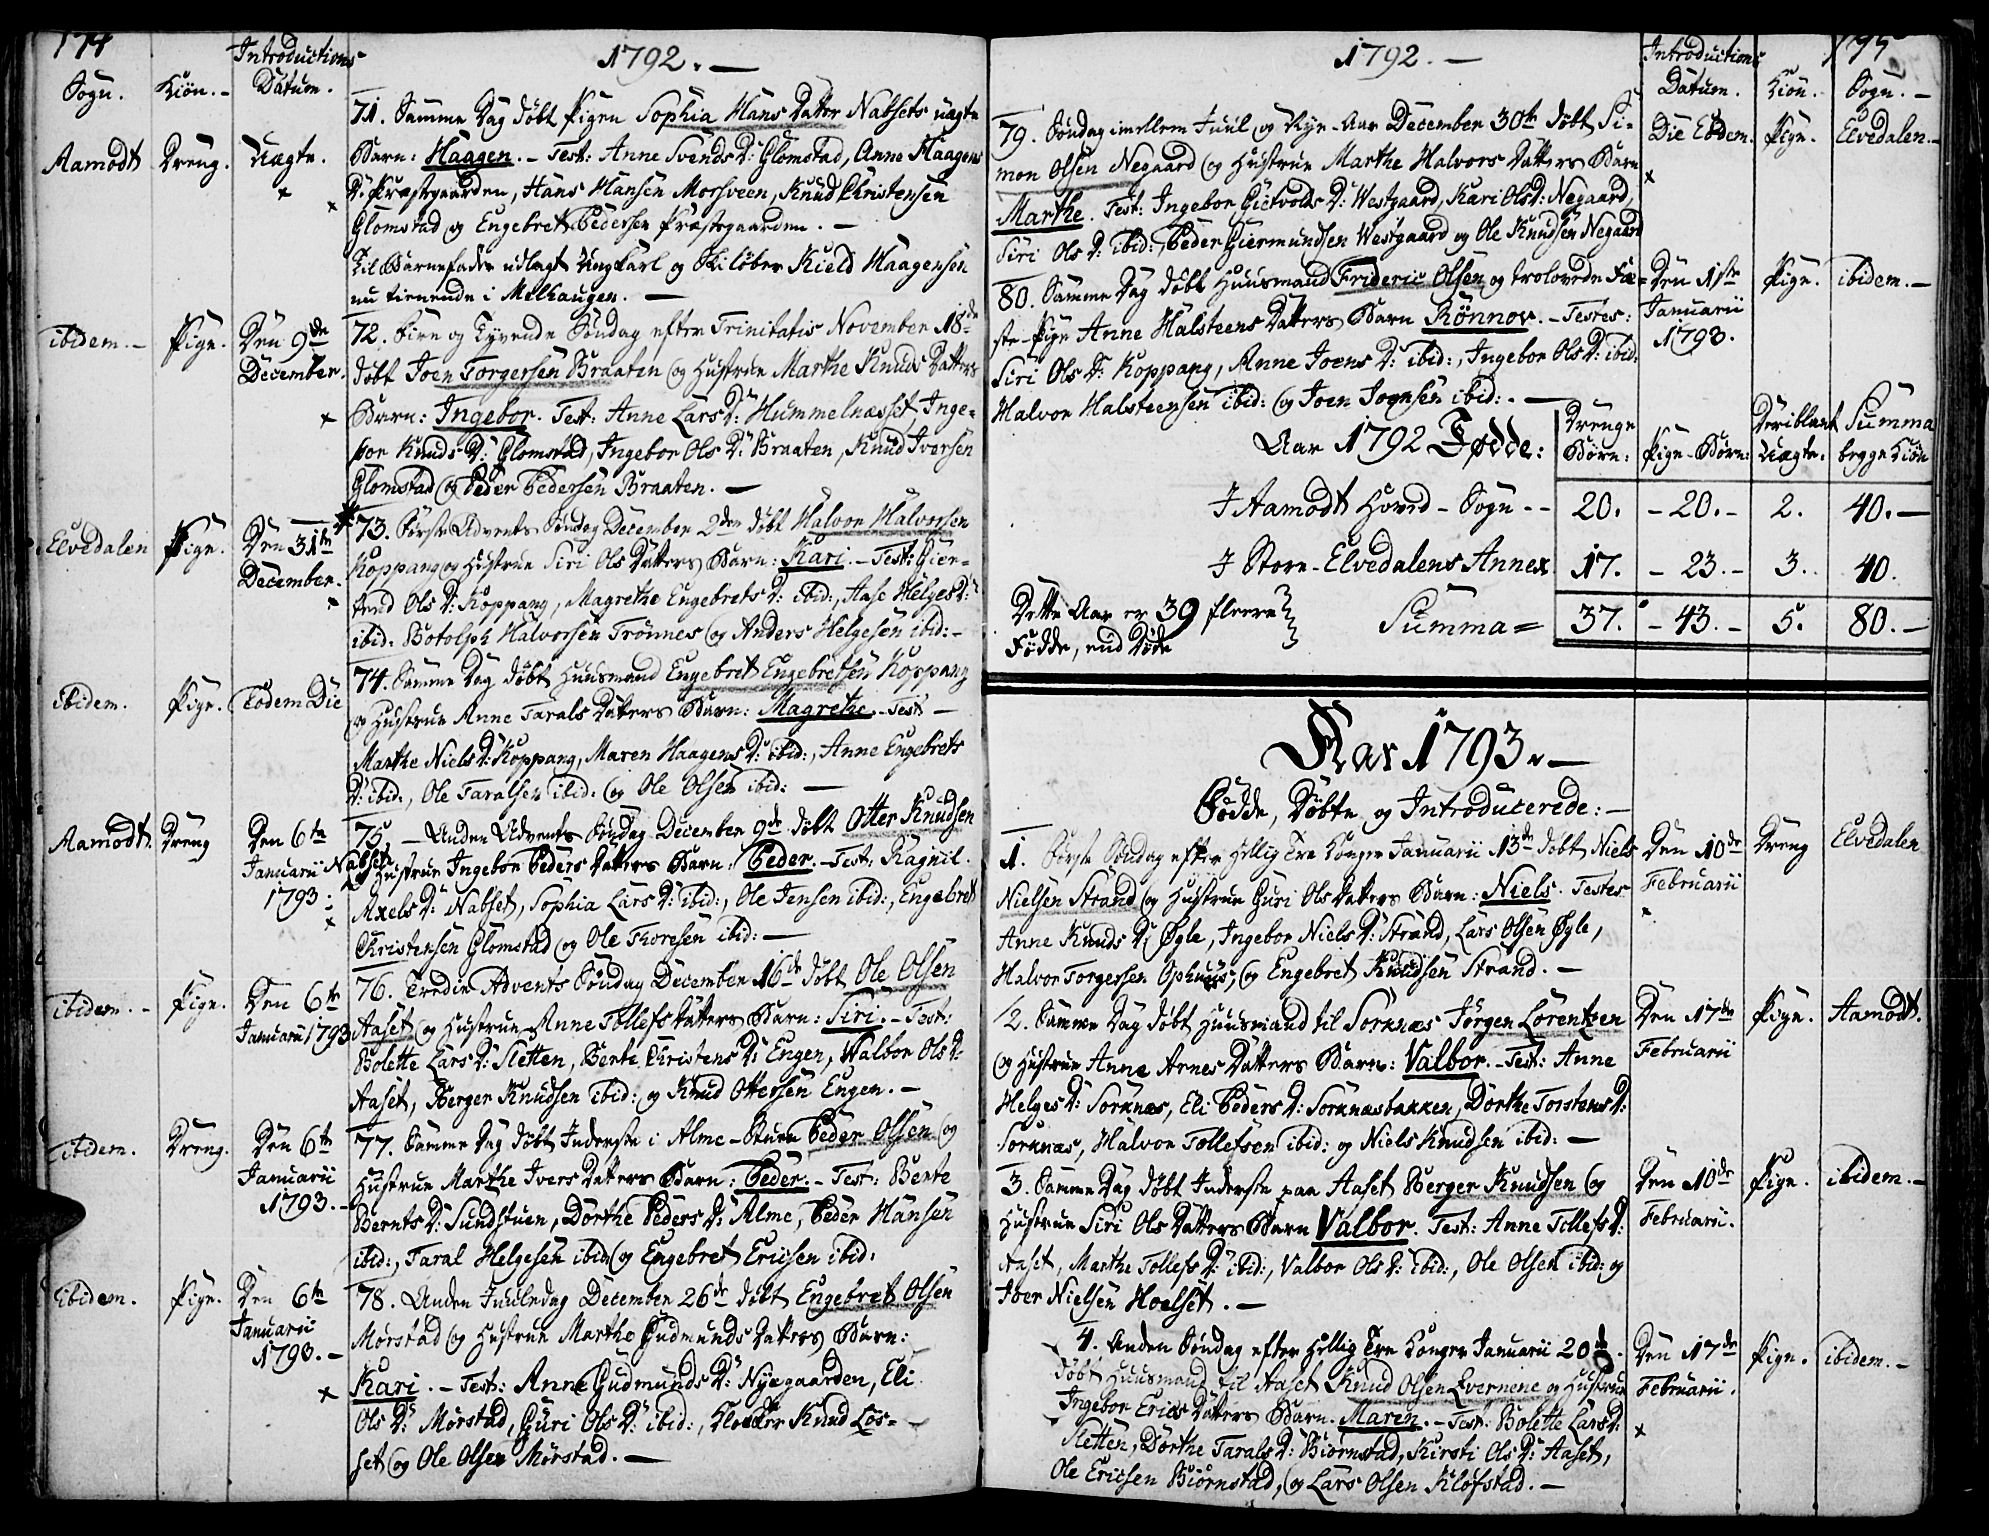 174
1792. —
Sogn. Kiön. – Introductions Datum.
Aamodt Dreng. Uægte.
71. Samme Dag døbt Pigen Sophia Hans Datter Nabsets uægte
Barn: Haagen. – Test: Anne Svends D: Glomstad, Anne Haagens
D: Præstegaarden, Hans Hansen Morsveen, Knud Christensen
Glomstad og Engebret Pedersen Præstegaarden. —
Til Barnefader udlagt Ungkarl og Skiløber Kield Haagensen
nu tienende i Melhaugen. —
ibidem. – Pige. Den 9de December.
72. Fire og Tyvende Søndag efter Trinitatis November 18de
døbt Joen Torgersen Braaten og Hustrue Marthe Knuds Datters
Barn: Ingebor. Test: Anne Lars D: Hummelnæsset, Inge=
bor Knuds D: Glomstad, Ingebor Ols D: Braaten, Knud Iversen
Glomstad og Peder Pedersen Braaten. —
Elvedalen Pige. Den 31te December.
73. Første Advents Søndag December 2den døbt Halvor Halvorsen
Koppang og Hustrue Siri Ols Datters Barn: Kari. – Test: Gier=
trud Ols D: Koppang, Magrethe Engebrets D: ibid:, Aase Helges D:
ibid: Botolph Halvorsen Trönnes og Anders Helgesen ibid: –
ibidem. Pige. Eodem Die
74. Samme Dag døbt Huusmand Engebret Engebretsen Koppang
og Hustrue Anne Tarals Datters Barn: Magrethe. – Test –
Marthe Niels D: Koppang, Maren Haagens D: ibid:, Anne Engebrets
D: ibid:, Ole Taralsen ibid: og Ole Olsen ibid: —
Aamodt. Dreng Den 6te Januarii 1793.
75. – Anden Advents Søndag December 9de døbt Otter Knudsen
Nabset og Hustrue Ingebor Peders Datters Barn: Peder. – Test: Ragnil
Axels D: Nabset, Sophia Lars D: ibid:, Ole Jensen ibid:, Engebret
Christensen Glomstad og Ole Thoresen ibid: —
ibidem. – Pige. Den 6te Januarii 1793
76. Tredie Advents Søndag December 16de døbt Ole Olsen
Aaset og Hustrue Anne Tollefs Datters Barn: Siri. – Test:
Bolette Lars D: Sletten, Berte Christens D: Engen, Valbor Ols D:
Aaset, Berger Knudsen ibid: og Knud Ottersen Engen. –
ibidem. Dreng. Den 6te Januarii 1793. –
77. Samme Dag døbt Inderste i Alme-Stuen Peder Olsen og
Hustrue Marthe Ivers Datters Barn: Peder. – Test: Bente
Bernts D: Sundstuen, Dorthe Peders D: Alme, Peder Hansen
ibid:, Taral Helgesen ibid og Engebret Ericsen ibid:
ibidem. Pige. Den 6te Januarii 1793. –
78. Anden Juuledag December 26de døbt Engebret Olsen
Mörstad og Hustrue Marthe Gudmunds Datters Barn:
Kari. – Test: Anne Gudmunds D: Nyegaarden, Eli
Ols D: Mörstad, Guri Ols D: ibid:, Klokker Knud Lös=
set og Ole Olsen Mörstad. —
1792. —
Introductions Datum. Kiön. Sogn. –
79. Søndag imellem Juul og Nye-Aar December 30te døbt Si=
mon Olsen Negaard og Hustrue Marthe Halvors Datters Barn
Marthe. Test: Ingebor Gietvolds D: Westgaard, Kari Ols D: Negaard,
Siri Ols D: ibid:, Peder Giermundsen Westgaard og Ole Knudsen Negaard
Die Eodem. Pige. Elvedalen. –
80. Samme Dag døbt Huusmand Frideric Olsen og trolovede Fæ=
ste-Pige Anne Halsteens Datters Barn Rönnov. – Testes:
Siri Ols D: Koppang, Anne Joens D: ibid:, Ingebor Ols D: ibid:
Halvor Halsteensen ibid: og Joen Joensen ibid: . —
Den 1ste Januarii 1793. Pige. ibidem. –
Aar 1792 Fødde: Drenge Børn: Pige-Børn: Deriblant Uægte: Summa begge Kiön
I Aamodt Hoved-Sogn – – 20. – 20. – 2. 40. –
I Store-Elvedalens Annex 17. – 23. – 3. 40.
Dette Aar er 39 fleere
Fødde, end Døde
Summa = 37. – 43. – 5. 80. –
Aar 1793. —
Fødde, Døbte og Introducerede: –
1. Første Søndag efter Hellig Tre Konger Januarii 13de døbt Niels
Nielsen Strand og Hustrue Guri Ols Datters Barn: Niels. Testes
Anne Knuds D: Øgle, Ingebor Niels D: Strand, Lars Olsen Øgle,
Halvor Torgersen Ophuus, og Engebret Knudsen Strand. –
Den 10de Februarii Dreng Elvedalen
2. Samme Dag døbt Huusmand til Sorknæs Jörgen Lorentzen
og Hustrue Anne Arnes Datters Barn: Valbor. – Test: Anne
Helges D: Sorknæs, Eli Peders D: Sorknæsbakken, Dorthe Torstens D:
Sorknæs, Halvor Tollefsen ibid: og Niels Knudsen ibid: —
Den 17de Februarii Pige. Aamodt.
3. Samme Dag døbt Inderste paa Aaset Berger Knudsen og
Hustrue Siri Ols Datters Barn Valbor. Test: Anne Tollefs D:
Aaset, Marthe Tollefs D: ibid:, Valbor Ols D: ibid:, Ole Olsen ibid: og
Joer Nielsen Hoelset. —
Den 10de Februarii. Pige. ibidem. –
4. Anden Søndag efter Hellig Tre Konger Januarii 20de.
døbt Huusmand til Aaset Knud Olsen Evernene og Hustrue
Ingebor Erics Datters Barn. Maren. – Test: Bolette Lars D:
Sletten, Dorthe Tarals D: Biörnstad, Kirsti Ols D: Aaset,
Ole Ericsen Biörnstad, og Lars Olsen Kløfstad. –
Den 17de Februarii. Pige. ibidem. –